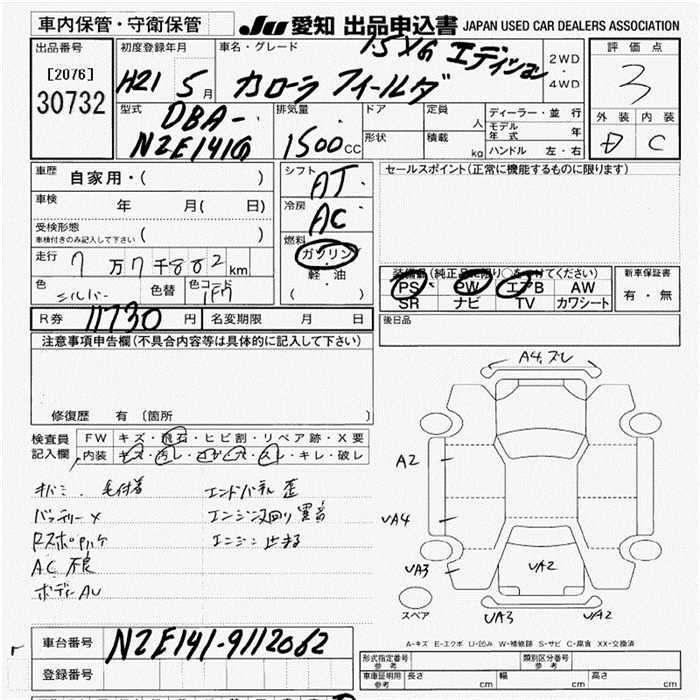 車内保管・守衛保管
JU 愛知 出品申込書 JAPAN USED CAR DEALERS ASSOCIATION
出品番号
[2076]
30732
初度登録年月
H21 5 月
車名・グレード
1.5XG エディション
カローラ フィールダ
2WD
・
4WD
評価点
3
外装 内装
D C
型式
DBA-
NZE141G
排気量
1500 CC
ドア
形状
定員
人
積載
kg
ディーラー・並行
モデル年式 年
ハンドル 左・右
車歴
自家用・( )
車検
年 月( 日)
受検形態
車検付きのみ記入して下さい ( )
走行 7万7千882 km
色 シルバー 色替 色コード 1F7
シフト
AT
冷房
AC
燃料
ガソリン
・
軽・油
( )
セールスポイント(正常に機能するものに限ります)
装備品(純正品に限り○をつけてください)
PS PW エアB AW
SR ナビ TV カワシート
新車保証書
有・無
R券 11730 円 名変期限 月 日
後日品
注意事項申告欄(不具合内容等は具体的に記入して下さい)
修復歴 有 (箇所 )
検査員
記入欄
FW キズ・飛石・ヒビ割・リペア跡・X要
内装 キズ・汚レ・コゲ・ス・スレ・キレ・破レ
エンドパネル 歪
バッテリー×
エンジン廻り 異音
AC 不良
ボディAU
A4.ズレ
A2
UA4
UA3
UA2
UA2
UA3
UA2
スペア
A-キズ E-エクボ U-凹み W-補修跡 S-サビ C-腐食 XX-交換済
車台番号 NZE141-9112062
登録番号
形式指定番号
参考
類別区分番号
参考
車庫証明用
参考
長さ cm 幅 cm 高さ cm